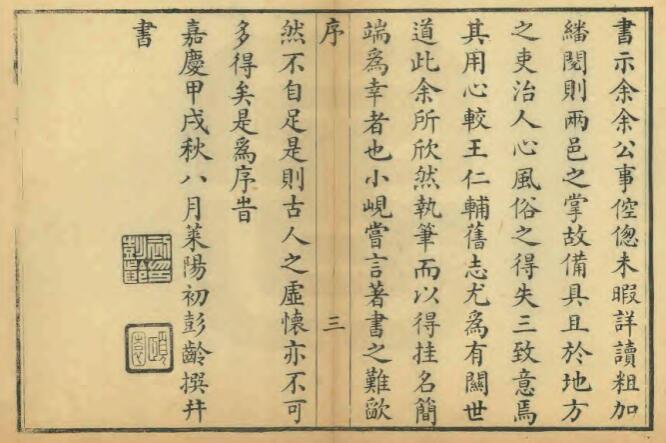 書示余余公事倥傯未暇詳讀粗加
繙閱則兩邑之掌故備具且於地方
之吏治人心風俗之得失三致意焉
其用心較王仁輔舊志尤爲有關世
道此余所欣然執筆而以得挂名簡
端爲幸者也小峴嘗言著書之難歐
序
三
然不自足是則古人之虛懷亦不可
多得矣是爲序旹
嘉慶甲戌秋八月萊陽初彭齡撰幷
書